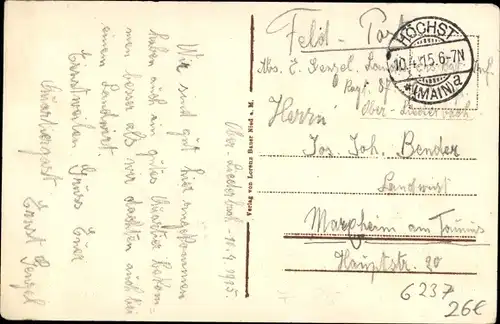 Feld-Post
HÖCHST
10.4.15.6-7N
*(MAIN)a
Abs. E. Henzel, Landst. Inf.
Regt. 87
Ober-Liederbach
Herrn
Jos. Joh. Bender
Landwirt
Marxheim am Taunus
Hauptstr. 20
6237
26€
Verlag von Lorenz Bauer Nied a. M.
Ober-Liederbach - 11.4.1915.
Wir sind gut hier angekommen
haben auch ein gutes Quartier bekom-
men besser als wir dachten auch bei
einem Landwirt.
Einstweilen Gruss Euer
Quartiergast
Ernst Henzel